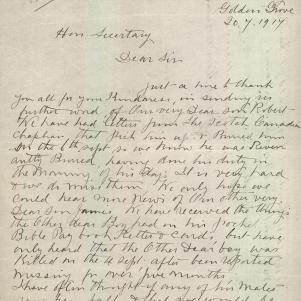 Golden Grove
30.7.1917
Hon. Secretary
Dear Sir
Just a line to thank
you all for your kindness, in sending us
further word of Our very Dear son Robert-
We have had letters from the Scotch Canadian
Chaplain, that Pick him up & Buried him
on the 6th Sept so we know he was Rever-
antly Buried, having done his duty in
the Morning of his Days. It is very hard
& we do miss them. We only hope we
could hear More News of Our other very
Dear Son James. We have received the things
the Other Dear Boy had on his
Bible Pay Book Letter & Card, but have
only heard that the Other Dear boy was
Killed on the 4 Sept. after been reported
missing for over five months
I have often thought if any of his Mates